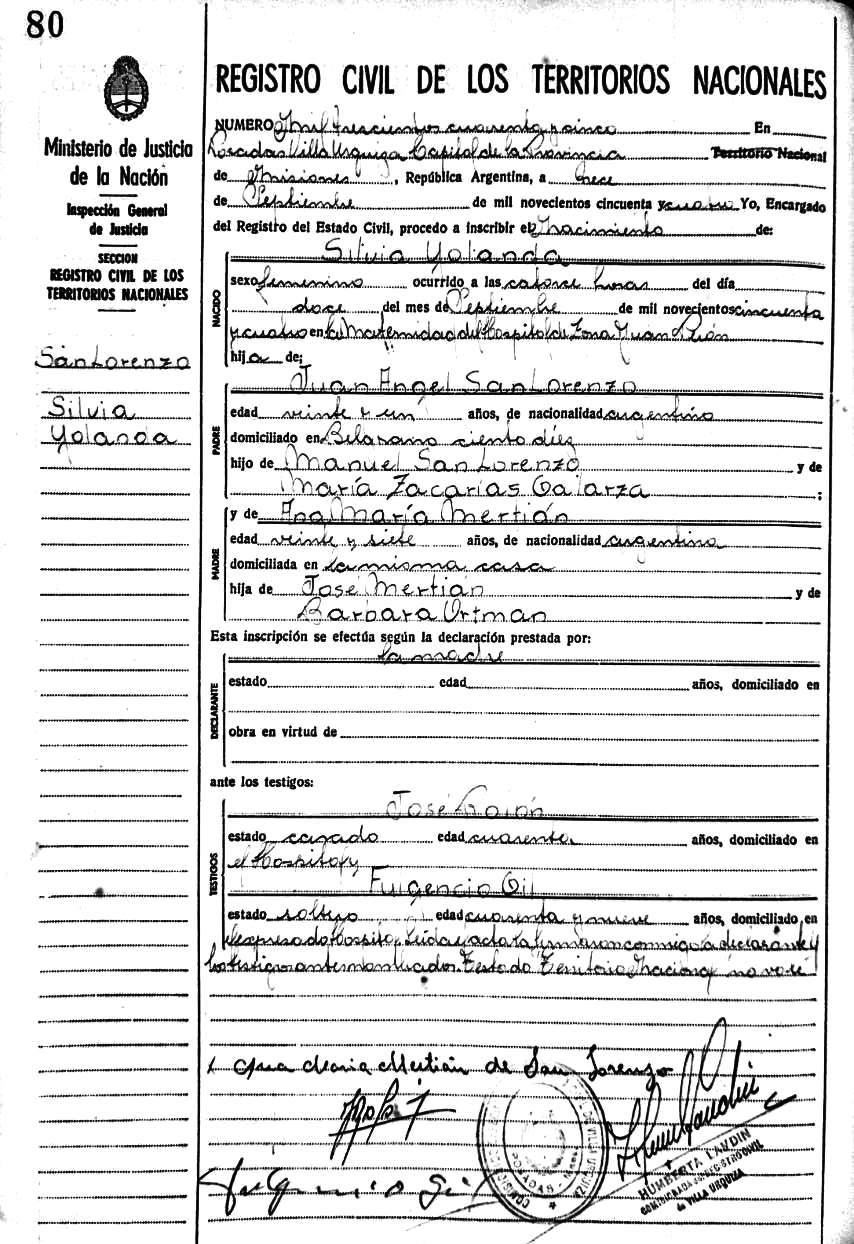 80
Ministerio de Justicia
de la Nación
Inspección General
de Justicia
SECCION
REGISTRO CIVIL DE LOS
TERRITORIOS NACIONALES
San Lorenzo
Silvia
Yolanda
REGISTRO CIVIL DE LOS TERRITORIOS NACIONALES
NUMERO Mil trescientos cuarenta y cinco En
Posadas Villa Urquiza Capital de la Provincia Territorio Nacional
de Misiones, República Argentina, a trece
de Septiembre de mil novecientos cincuenta y cuatro Yo, Encargado
del Registro del Estado Civil, procedo a inscribir el Nacimiento de:
NACIDO
Silvia Yolanda
sexo femenino ocurrido a las catorce horas del día
doce del mes de Septiembre de mil novecientos cincuenta
y cuatro en la Maternidad del Hospital de Zona Juan Perón
hija de:
PADRE
Juan Angel San Lorenzo
edad veinte y un años, de nacionalidad argentino
domiciliado en Belgrano ciento diez
hijo de Manuel San Lorenzo y de
María Zacarías Galarza ;
MADRE
y de Ana María Mertián
edad veinte y siete años, de nacionalidad argentina
domiciliada en la misma casa
hija de José Mertian y de
Barbara Ortman
Esta inscripción se efectúa según la declaración prestada por:
DECLARANTE
la madre
estado edad años, domiciliado en
obra en virtud de
ante los testigos:
TESTIGOS
José
estado casado edad cuarenta años, domiciliado en
el Hospital y
Fulgencio Gil
estado soltero edad cuarenta y nueve años, domiciliado en
el expresado Hospital. Leida el acta la firmaron conmigo la declarante y
los testigos antes nombrados. Testado Territorio Nacional no vale
Ana Maria Mertián de San Lorenzo
Fulgencio Gil
POSADAS
VILLA URQUIZA
HUMBERTA LANDIN
REGISTRO CIVIL
de VILLA URQUIZA